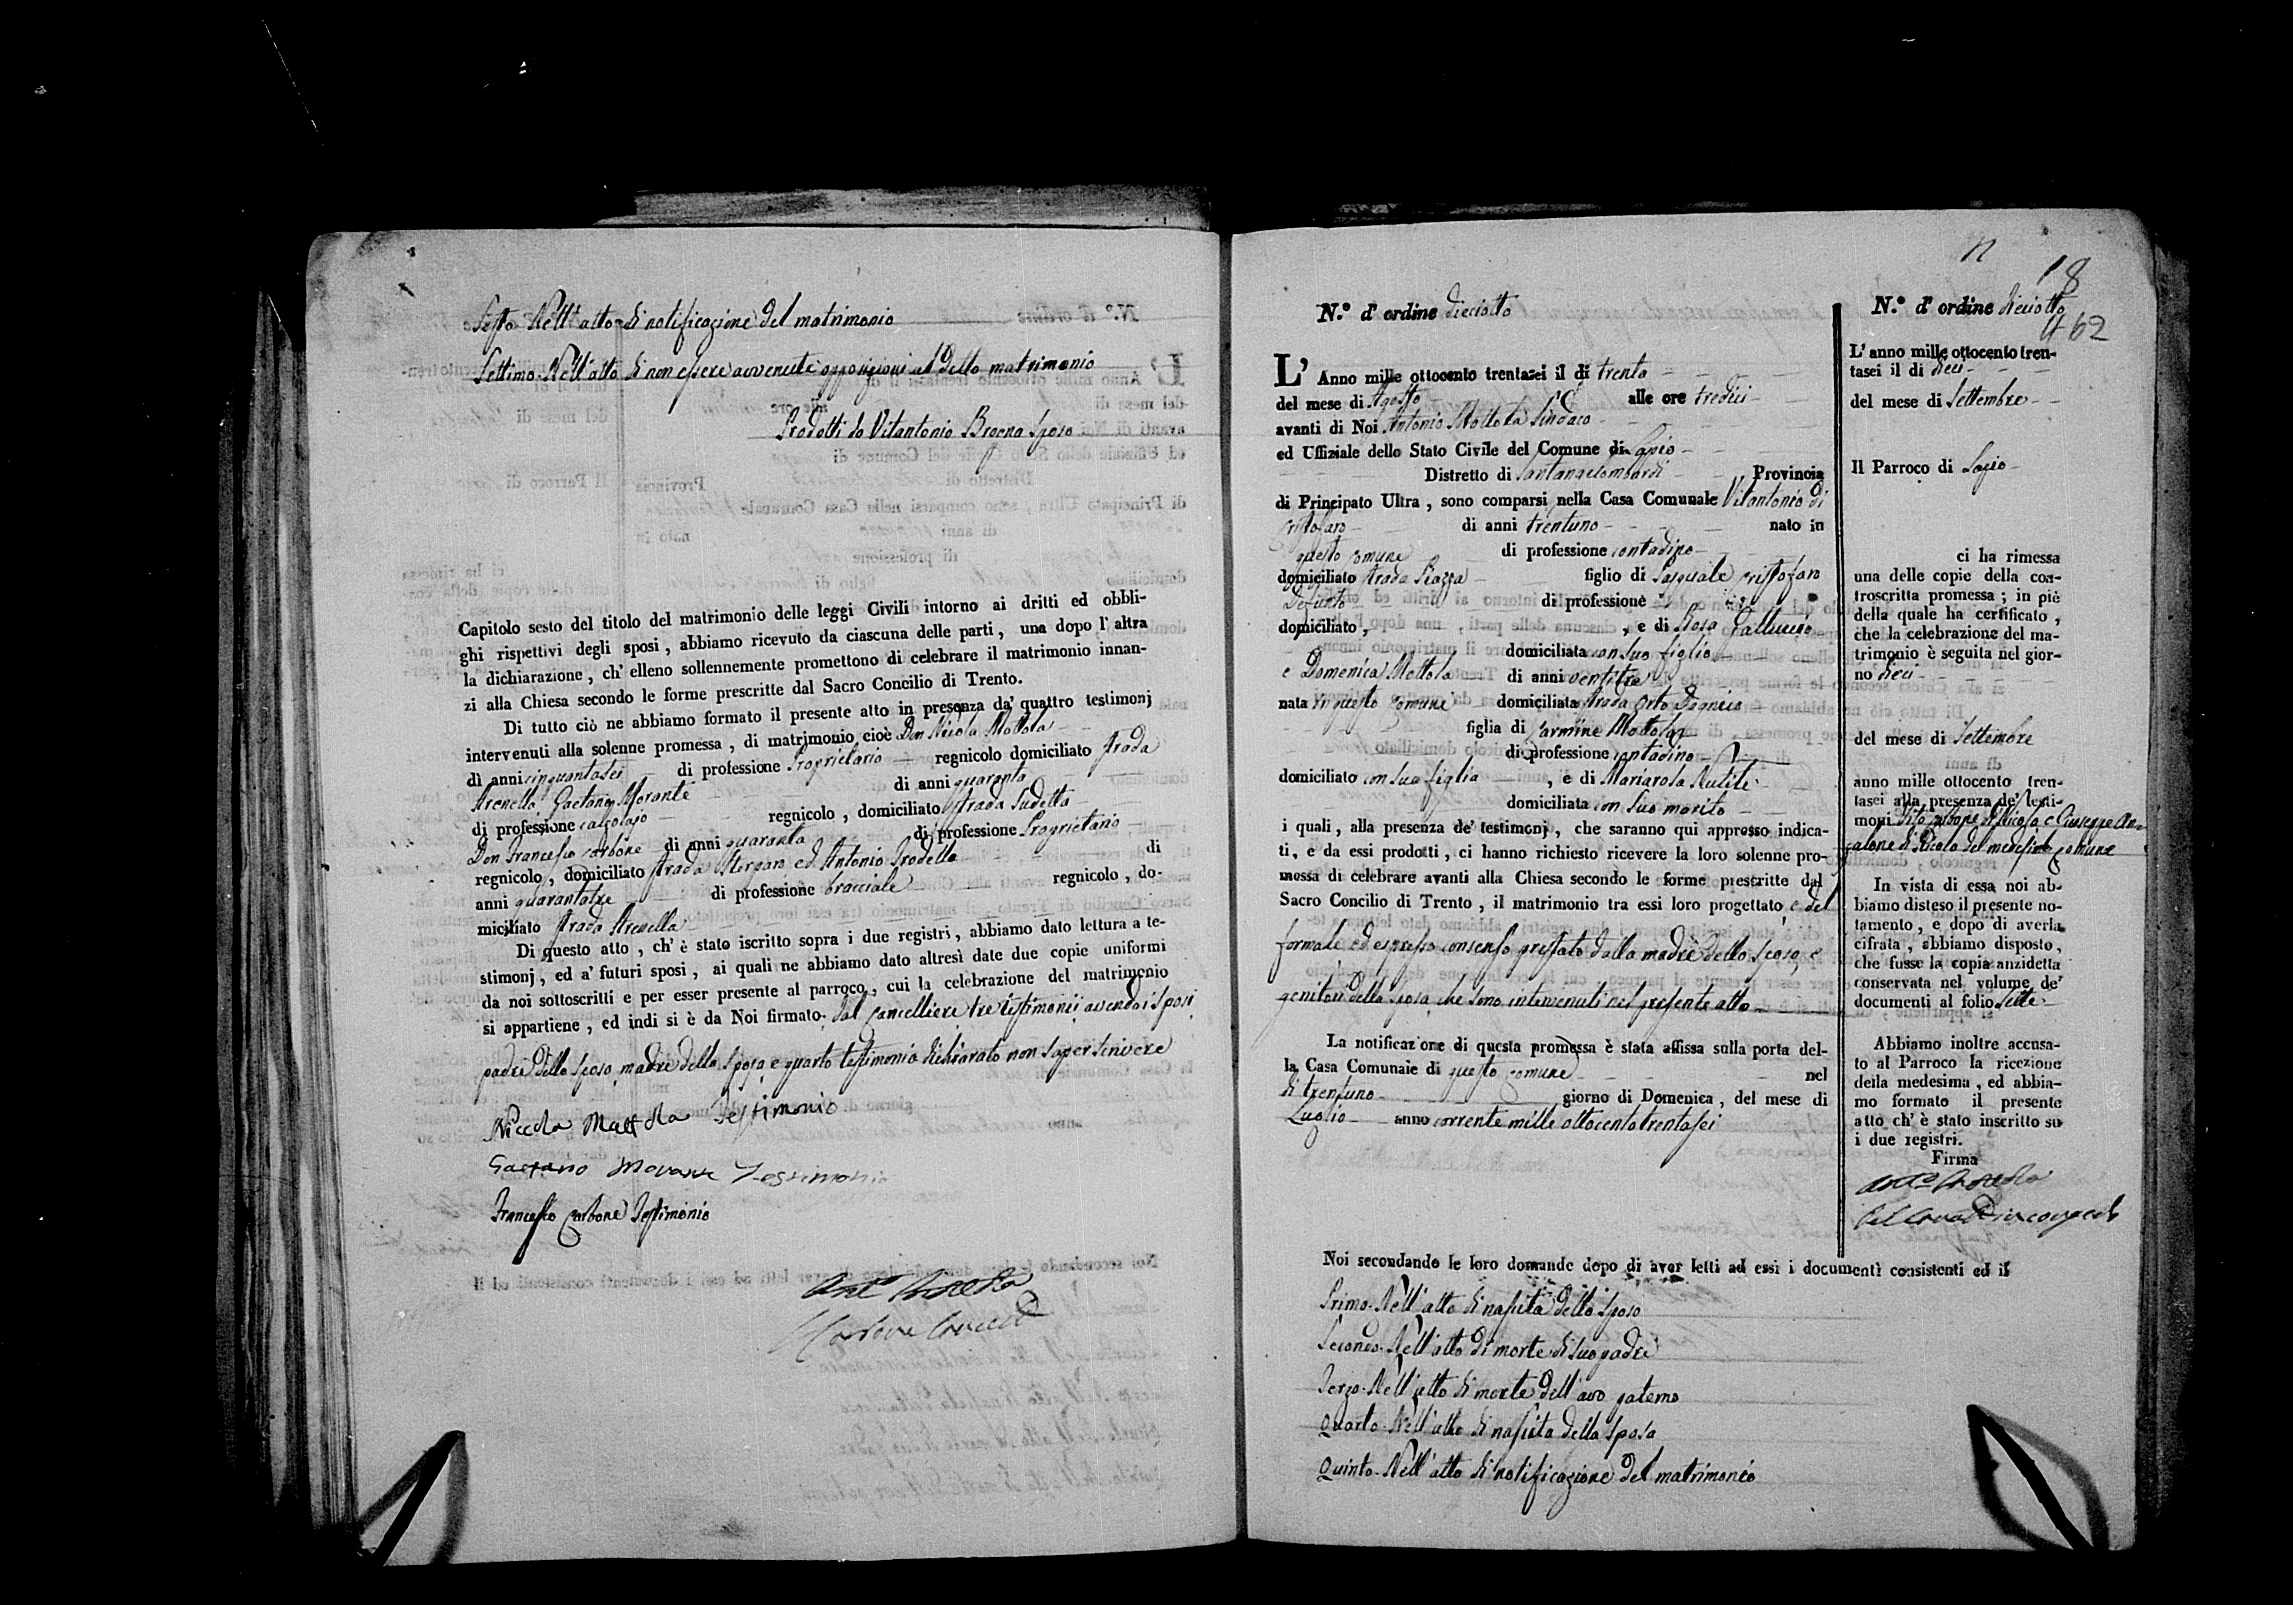 Sesto Nell'atto di notificazione del matrimonio
Settimo Nell'atto di non essere avvenute opposizioni al detto matrimonio
Prodotti da Vitantonio Brogna sposo
Capitolo sesto del titolo del matrimonio delle leggi Civili intorno ai dritti ed obbli-
ghi rispettivi degli sposi, abbiamo ricevuto da ciascuna delle parti, una dopo l'altra
la dichiarazione, ch' elleno sollennemente promettono di celebrare il matrimonio innan-
zi alla Chiesa secondo le forme prescritte dal Sacro Concilio di Trento.
Di tutto ciò ne abbiamo formato il presente atto in presenza da' quattro testimonj
intervenuti alla solenne promessa, di matrimonio cioè Don Nicola Mottola
di anni cinquantasei di professione Proprietario regnicolo domiciliato strada
Arenella Gaetano Morante di anni quaranta
di professione calzolajo regnicolo, domiciliato strada sudetta
Don Francesco Carbone di anni quaranta di professione Proprietario
regnicolo, domiciliato strada ed Antonio di
anni quarantatre di professione bracciale regnicolo, do-
miciliato strada Arenella
Di questo atto, ch' è stato iscritto sopra i due registri, abbiamo dato lettura a te-
stimonj, ed a' futuri sposi, ai quali ne abbiamo dato altresì date due copie uniformi
da noi sottoscritti e per esser presente al parroco, cui la celebrazione del matrimonio
si appartiene, ed indi si è da Noi firmato dal Cancelliere tre testimonii avendo i sposi
padre dello sposo, madre della sposa e quarto testimonio dichiarato non saper scrivere
Niccola Mottola Testimonio
Gaetano Morante Testimonio
Francesco Carbone Testimonio
Ant.o Mottola
18
62
N.° d' ordine dieciotto
L' Anno mille ottocento trentasei il di trenta
del mese di Agosto alle ore tredici
avanti di Noi Antonio Mottola Sindaco
ed Uffiziale dello Stato Civile del Comune di Lapio
Distretto di Santangelombardi Provincia
di Principato Ultra, sono comparsi nella Casa Comunale Vitantonio di
Cristofaro di anni trentuno nato in
questo comune di professione contadino
domiciliato strada Piazza figlio di Pasquale Cristofaro
defunto di professione
domiciliato, , e di Rosa Galluccio
domiciliata con suo figlio
e Domenica Mottola di anni ventitre
nata in questo comune domiciliata strada Orto
figlia di Carmine Mottola
di professione contadino
domiciliato con sua figlia , e di Mariarosa
domiciliata con suo marito
i quali, alla presenza de' testimonj, che saranno qui appresso indica-
ti, e da essi prodotti, ci hanno richiesto ricevere la loro solenne pro-
messa di celebrare avanti alla Chiesa secondo le forme prescritte dal
Sacro Concilio di Trento, il matrimonio tra essi loro progettato, e del
formale ed espresso consenso prestato dalla madre dello sposo, e
genitori della sposa che sono intervenuti nel presente atto
La notificazione di questa promessa è stata affissa sulla porta del-
la Casa Comunale di questo comune nel
di trentuno giorno di Domenica, del mese di
Luglio anno corrente mille ottocento trentasei
N.° d' ordine dieciotto
L' anno mille ottocento tren-
tasei il di dieci
del mese di Settembre
Il Parroco di Lapio
ci ha rimessa
una delle copie della con-
troscritta promessa; in piè
della quale ha certificato,
che la celebrazione del ma-
trimonio è seguita nel gior-
no dieci
del mese di Settembre
anno mille ottocento tren-
tasei alla presenza de' testi-
moni Vito Carbone di Nicola e Giuseppe
di Nicola del medesimo comune
In vista di essa noi ab-
biamo disteso il presente no-
tamento, e dopo di averla
cifrata, abbiamo disposto,
che fusse la copia anzidetta
conservata nel volume de'
documenti al folio sette
Abbiamo inoltre accusa-
to al Parroco la ricezione
della medesima, ed abbia-
mo formato il presente
atto ch' è stato inscritto su
i due registri.
Firma
Ant.o Mottola
Noi secondando le loro domande dopo di aver letti ad essi i documenti consistenti ed il
Primo Nell'atto di nascita dello sposo
Secondo Nell'atto di morte di suo padre
Terzo Nell'atto di morte dell'avo paterno
Quarto Nell'atto di nascita della sposa
Quinto Nell'atto di notificazione del matrimonio